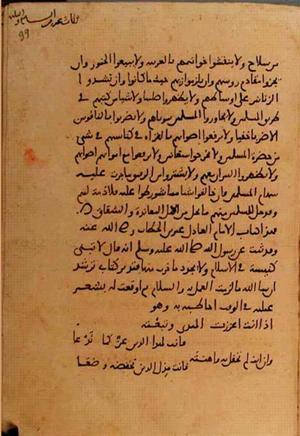 من سلاح ولا ينقشوا خواتمهم بالعربية ولا يبيعوا الخمور وان
يجزوا مقادم روسهم وان يلزموا زيهم حيث ما كانوا وان يشدوا
الزنانير على اوساطهم ولا يظهروا صليبا ولا شيا من كتبهم في
طريق المسلمين ولا يجاوروا المسلمين بموتاهم ولا يضربوا بالناقوس
الا ضربا خفيا ولا يرفعوا اصواتهم بالقراة في كنايسهم في شي
من حضرة المسلمين ولا يخرجوا سعانين ولا يرفعوا مع امواتهم اصواتهم
ولا يظهروا النيران معهم ولا يشتروا من الرقيق ما جرت عليه
سهام المسلمين وان خالفوا شيا مما شورطوا عليه فلا ذمة لهم
وقد حل للمسلمين منهم ما يحل من اهل المعاندة والشقاق
فهذا كتاب الامام العادل عمر بن الخطاب رضي الله عنه
وحدثت عن رسول الله صلى الله عليه وسلم انه قال لا تبنى
كنيسة في الاسلام ولا يجدد ما خرب منها
عليه في الوقت وهو
اذا انت اعززت الهدى وتبعته
فانت لهذا الدين عز كما تدعا
وان انت لم تحفل به
فانت مذل الدين تخفضه وضعا